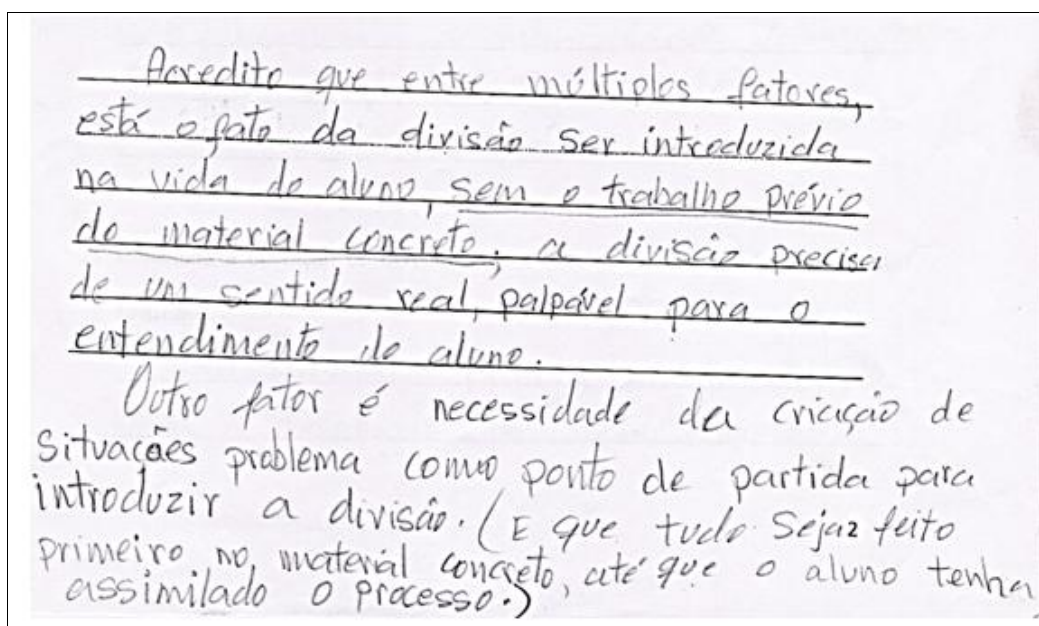 Acredito que entre múltiplos fatores,
está o fato da divisão ser introduzida
na vida do aluno, sem o trabalho prévio
do material concreto, a divisão precisa
de um sentido real, palpável para o
entendimento do aluno.
Outro fator é necessidade da criação de
situações problema como ponto de partida para
introduzir a divisão. (E que tudo seja feito
primeiro no material concreto, até que o aluno tenha
assimilado o processo.)